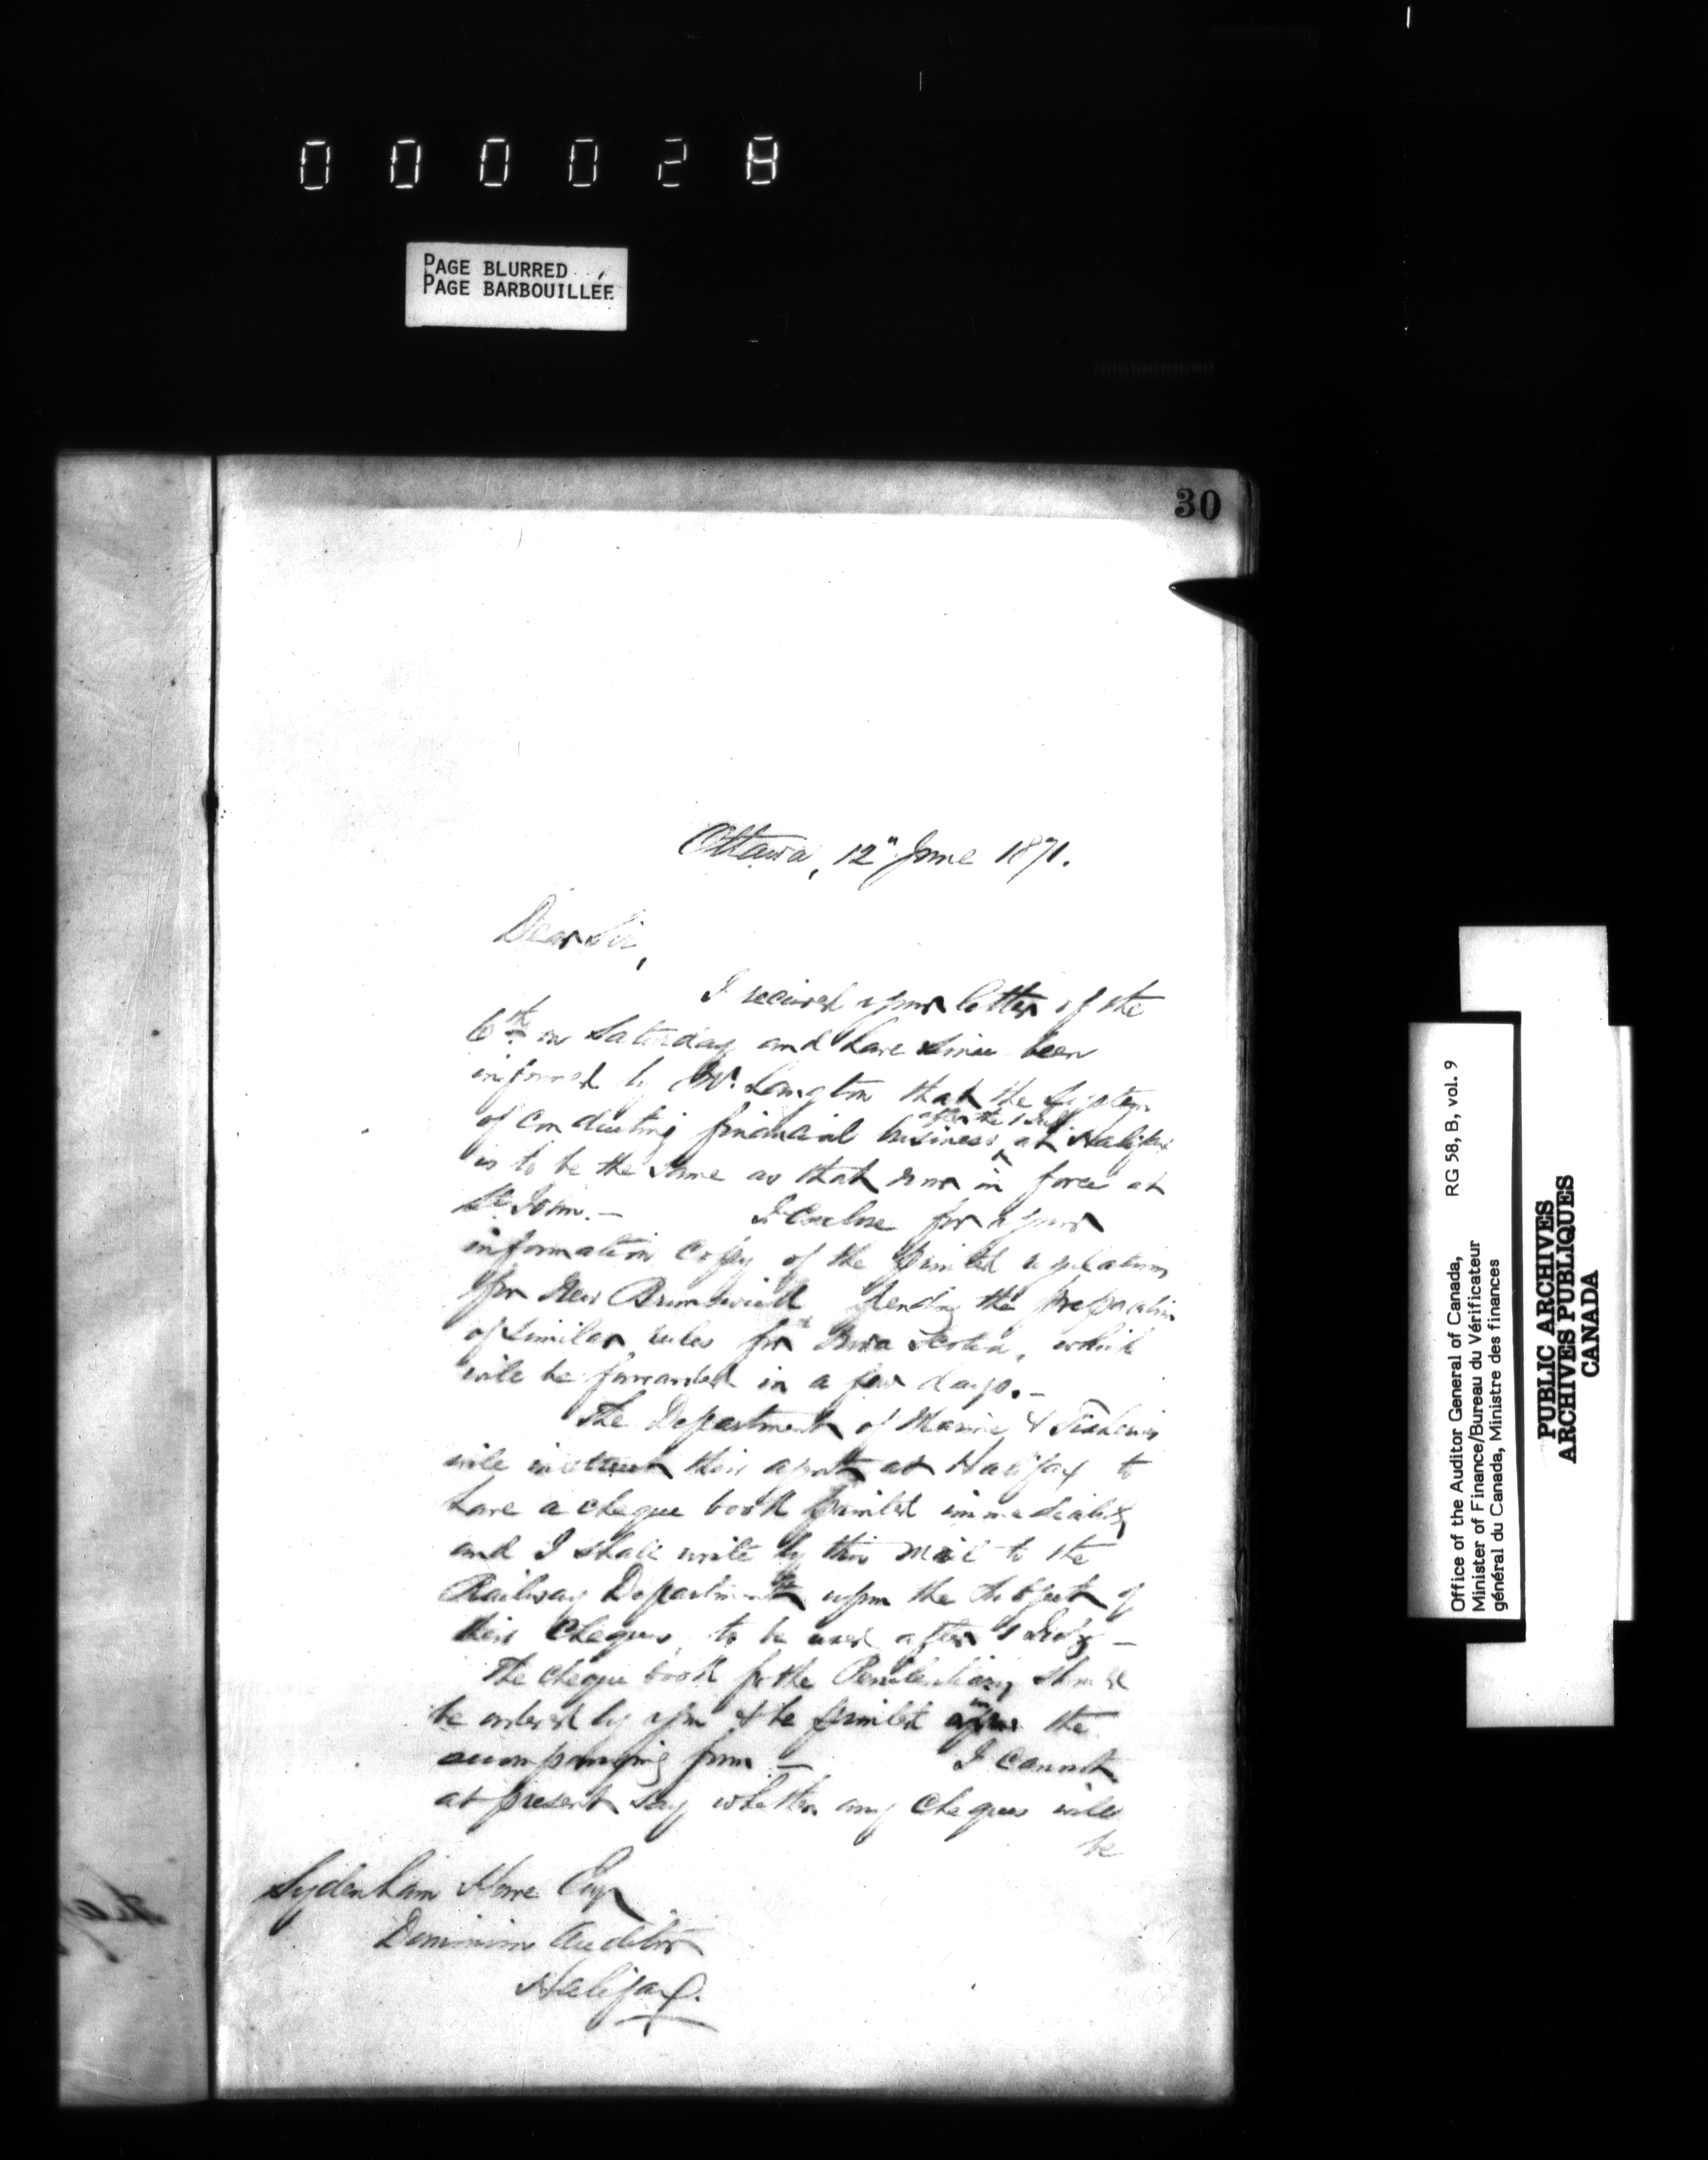 000028
PAGE BLURRED
PAGE BARBOUILLÉE
30
Ottawa, 12" June 1871.
Dear Sir,
I received your letter of the
6th on Saturday and have since been
informed by Mr. Langton that the System
of conducting financial business after the 1 July at Halifax
is to be the same as that now in force at
St. John.— I enclose for your
information copy of the printed regulations
for New Brunswick, pending the preparation
of similar rules for Nova Scotia, which
will be forwarded in a few days.—
The Department of Marine & Fisheries
will instruct their agent at Halifax to
have a cheque book printed immediately
and I shall write by this mail to the
Railway Department upon the subject of
their Cheques, to be used after 1 July—
The cheque book for the Penitentiary should
be ordered by you & be printed in the
accompanying form— I cannot
at present say whether any cheques will
be
Sydenham Howe Esqr
Dominion Auditor
Halifax.
Office of the Auditor General of Canada, RG 58, B, vol. 9
Minister of Finance/Bureau du Vérificateur
général du Canada, Ministre des finances
PUBLIC ARCHIVES
ARCHIVES PUBLIQUES
CANADA